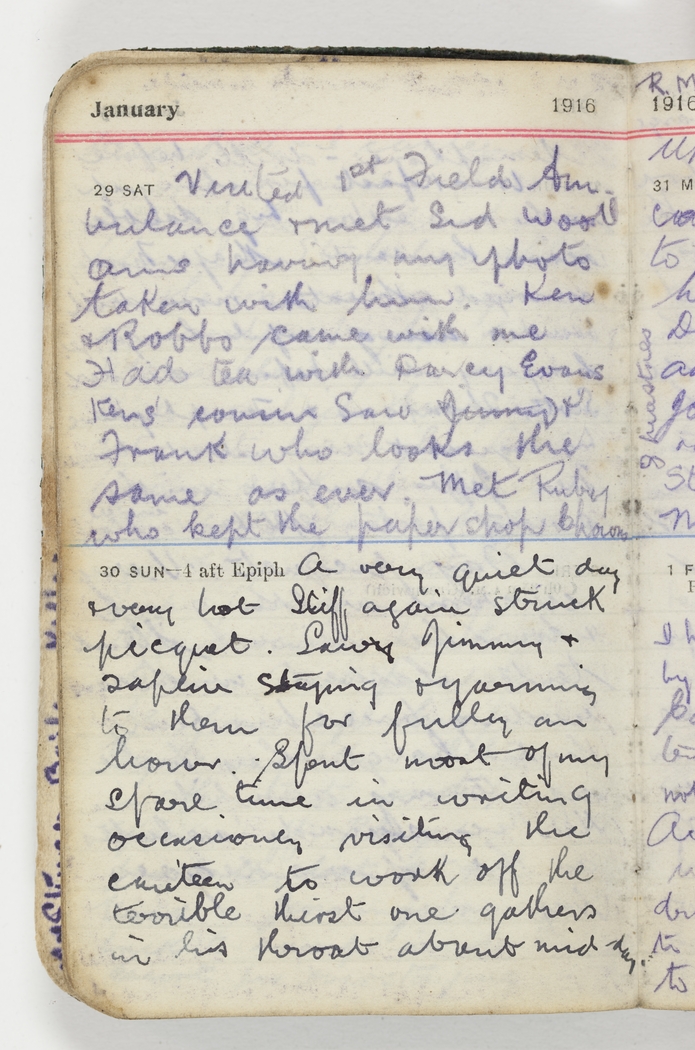 January 1916
29 SAT Visited 1st Field Am-
bulance & met Sid Wooll
having my photo
taken with him. Ken
& Robbo came with me
Had tea with Darcy Evans
Kens cousin Saw Jimmy &
Frank who looks the
same as ever. Met Ruby
who kept the paper shop
30 SUN—4 aft Epiph A very quiet day
& very hot Stiff again struck
picquet. Jimmy &
staying & yarning
to them for fully an
hour. Spent most of my
spare time in writing
occasioney visiting the
canteen to work off the
terrible thirst one gathers
in his throat about mid-day.
R. M
1916
31 M
to
1 F
I h
by
not
to
to